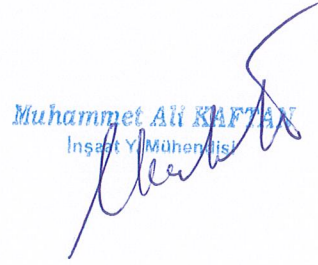 Muhammet Ali KAFTAN
İnşaat Y. Mühendisi